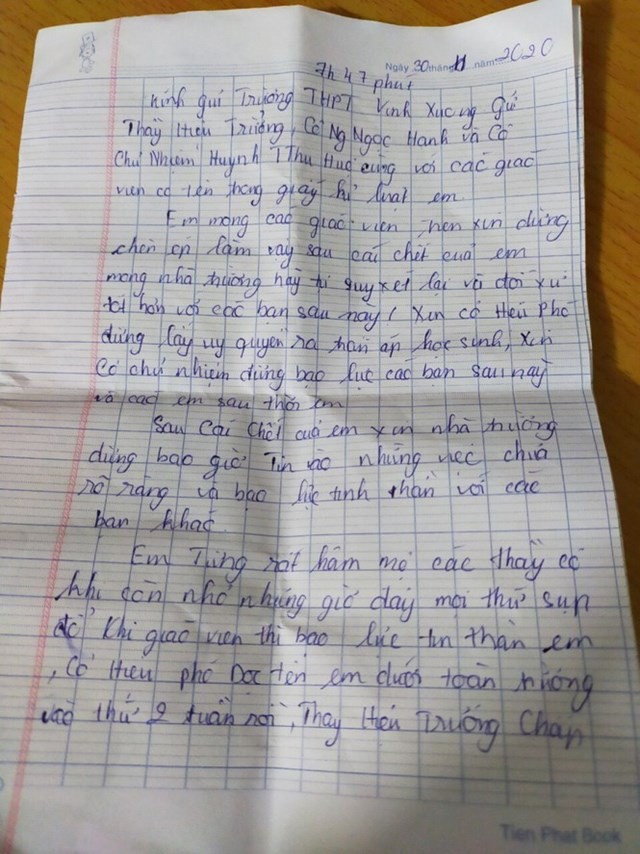 Ngày 30 tháng 11 năm 2020
7h 47 phút
Kính gửi Trường THPT Vĩnh Xương Gửi
Thầy Hiệu Trưởng, Cô Ng Ngọc Hanh và Cô
Chủ Nhiệm Huỳnh T Thu Huệ cùng với các giáo
viên có tên trong giấy kỉ luật em
Em mong các giáo viên, nên xin đừng
chèn ép lắm vậy sau cái chết của em
mong nhà trường hãy suy xét lại và đối xử
tốt hơn với các bạn sau này! Xin cô Hiệu Phó
đừng lấy uy quyền ra đàn áp học sinh, xin
Cô chủ nhiệm đừng bạo lực các bạn sau này
và các em sau thời em
Sau Cái Chết của em xin nhà trường
đừng bao giờ Tin vào những việc chưa
rõ ràng và bạo lực tinh thần với các
bạn khác.
Em Từng rất hâm mộ các thầy cô
khi còn nhỏ nhưng giờ đây mọi thứ sụp
đổ Khi giáo viên thì bạo lực tin thần em
, Cô Hiệu phó Đọc tên em dưới toàn trường
vào thứ 2 tuần rồi, Thầy Hiệu Trưởng Chấp
Tien Phat Book